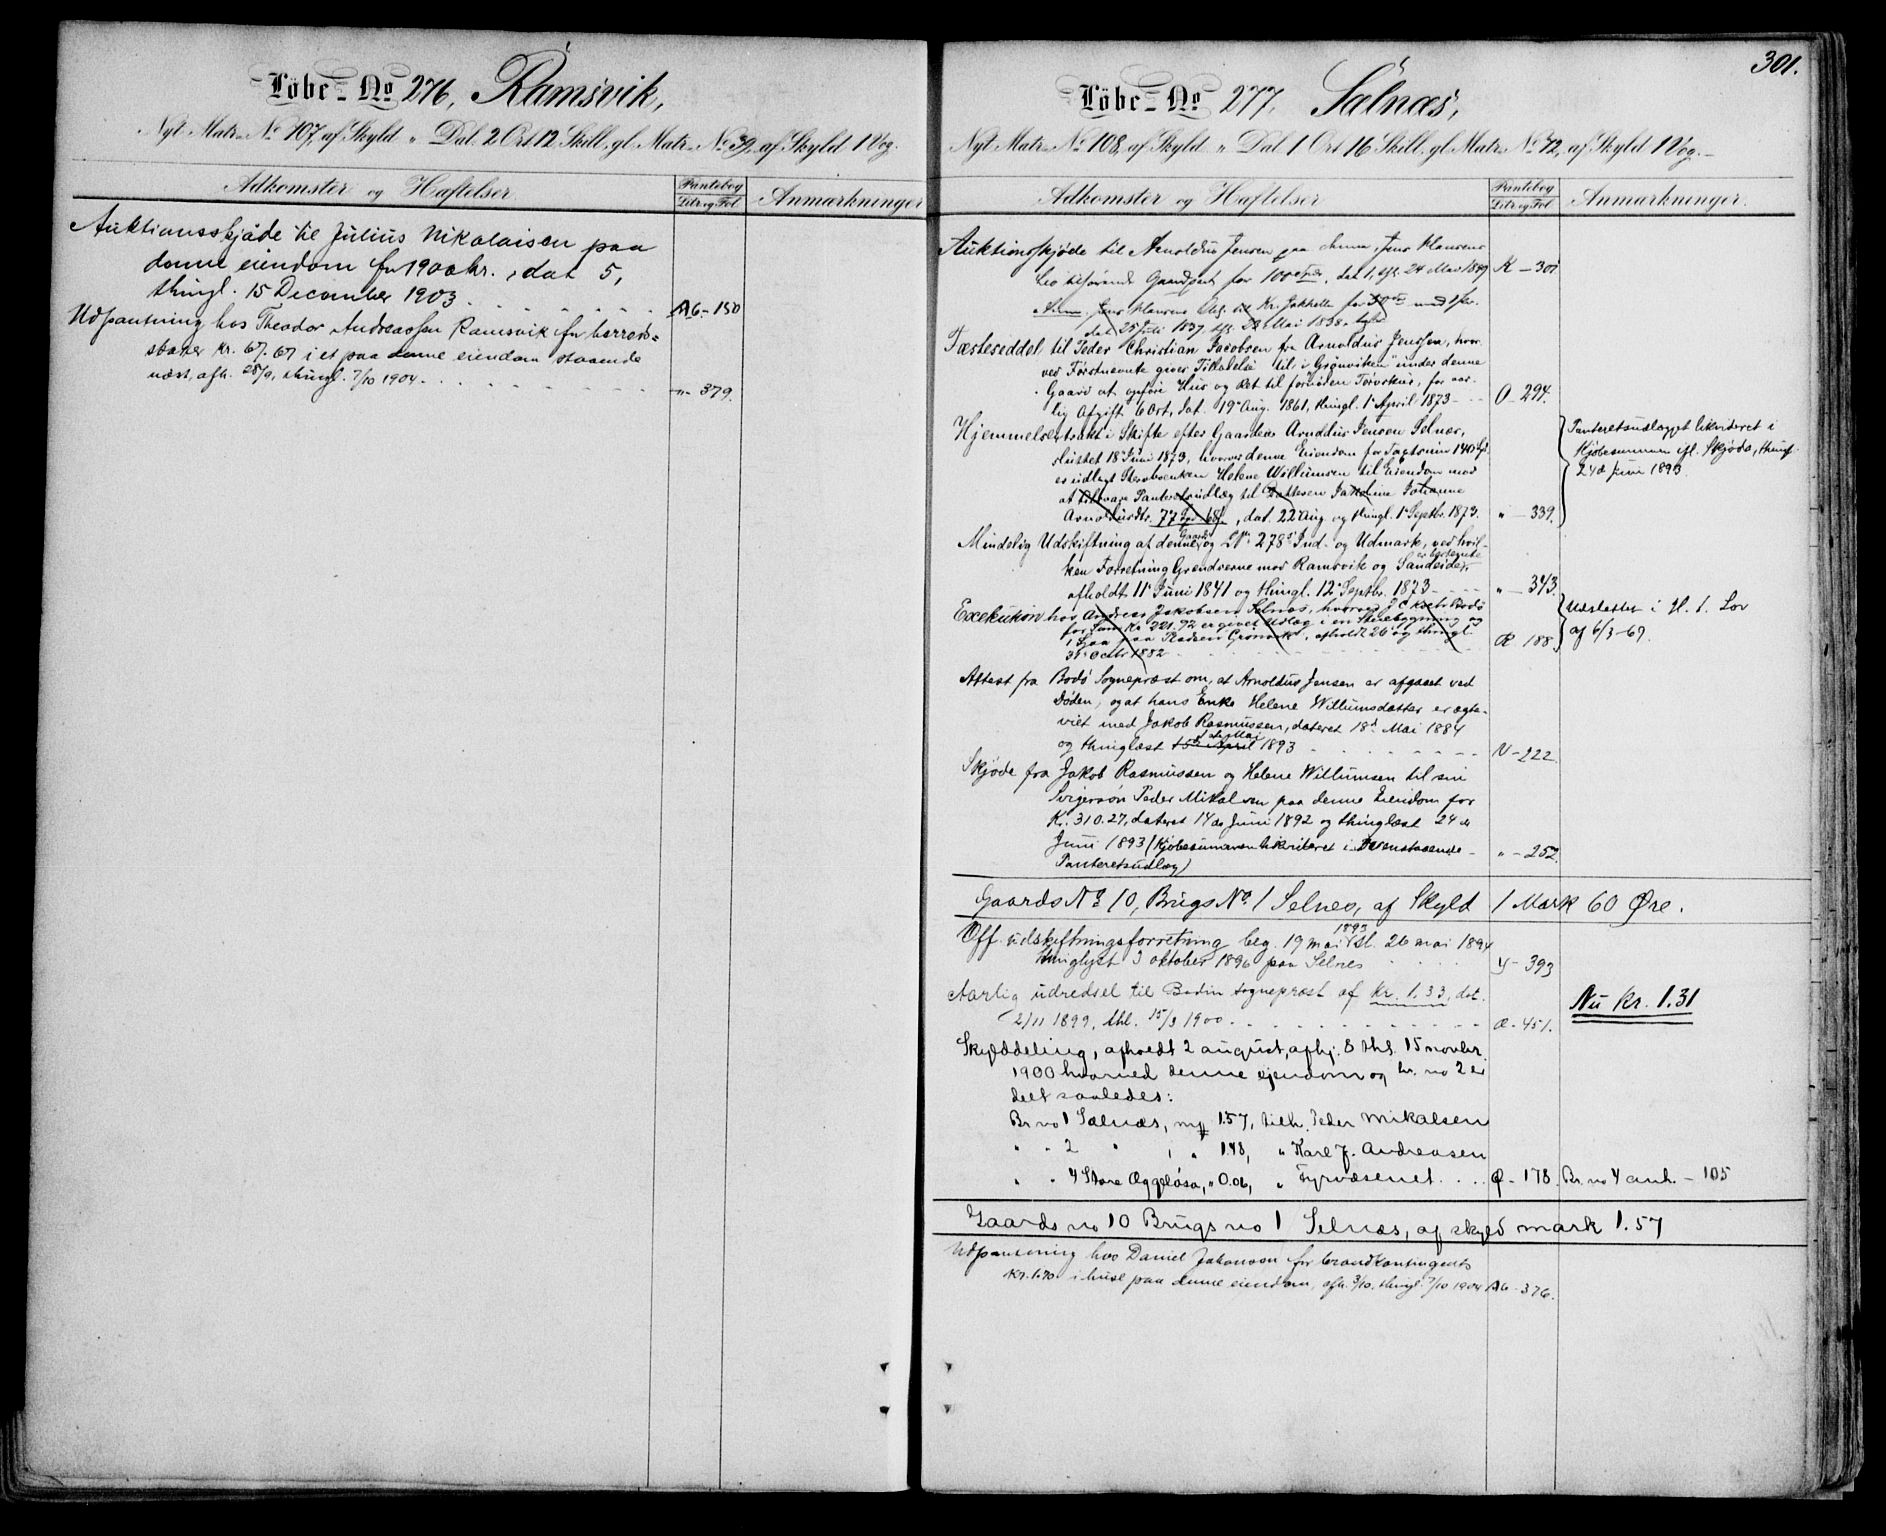 Löbe-No 276, Ramsvik,
Nyt Matr. No 107, af Skyld " Dal. 2 Ort 12 Skill, gl. Matr. No 39, af Skyld 1 Vog.
Adkomster og Hæftelser
Pantebog
Litr. og Fol.
Anmærkninger
Auktionsskjøde til Julius Nikolaisen paa
denne eiendom for 1900 kr., dat 5,
thingl. 15 December 1903
A6-150
Udpantning hos Theodor Andreassen Ramsvik for herreds-
skatter kr. 67.67 i et paa denne eiendom staaende
næst, afh. 28/9, thingl. 7/10 1904
-"- 379.
301.
Löbe-No 277. Sælnæs,
Nyt Matr. No 108, af Skyld " Dal. 1 Ort 16 Skill. gl. Matr. No 42, af Skyld 1 Vog.
Adkomster og Hæftelser
Pantebog
Litr. og Fol.
Anmærkninger.
Auktionsskjøde til Arnoldus Jensen paa denne, Jens Hansens
bo tilhørende Gaardpart for 100 Spdr, dat 1, 24 Mai 1849
K-301
Jens Hansens til Kr. Jakhelln for med 1 pr.
dat 25 Juli 1837 22 Mai 1838
Fæsteseddel til Peder Christian Jacobsen fra Arnoldus Jenssen, hvor-
ved Førstnævnte giver Tilladelse til i "Grønviken" under denne
Gaard at opføre Hus og Ret til fornøden Tørvskur, for aar-
lig Afgift 6 Ort, dat. 19 Aug. 1861, thingl. 1 April 1873
O-294.
Hjemmelsextrakt i Skifte efter Gaardens Arnoldus Jensen Selnæs,
sluttet 18 Juni 1873, hvorved denne Eiendom for Taxtsum 140 Spd.
er udlagt Stervboenken Helene Willumsen til Eiendom mod
at tilsvare Panteretsudlæg til Datteren Jakobine Johanne
Arnoldusdtr. 77 Spd 68 s, dat. 22 Aug. og thingl. 1 Septbr. 1873.
" - 339.
Panteretsudlægget likvideret i
Kjøbesummen ifl. Skjøde, thingl.
24de Juni 1893
Mindelig Udskiftning af denne Gaards og LNr 278s Ind- og Udmark, ved hvil-
ken Forretning Grændserne mod Ramsvik og Sandeide er bestemte
afholdt 11 Juni 1841 og thingl. 12 Septbr. 1873
" - 343.
Exekution hos Andreas Jakobsen Selnæs, hvorved J C Koch Bodø
for Sum Kr 221.92 er givet Udlæg i en Stuebygning og
1 paa Pladsen Grønvik, afholdt 26 og thingl.
31 Octbr 1882
R 188
Udslettet i H. t. Lov
af 6/3-69.
Attest fra Bodø Sognepræst om, at Arnoldus Jensen er afgaaet ved
Døden, og at hans Enke Helene Willumsdatter er ægte-
viet med Jakob Rasmussen, dateret 18d Mai 1884
og thinglæst 15de April 1893
V-222.
Skjøde fra Jakob Rasmussen og Helene Willumsen til sin
Svigersøn Peder Mikalsen paa denne Eiendom for
Kr. 310.27, dateret 14de Juni 1892 og thinglæst 24de
Juni 1893 (Kjøbesummen likvideret i ovenstaaende
Panteretsudlæg)
" - 252.
Gaards No 10, Brugs No 1 Selnes, af Skyld 1 Mark 60 Øre.
Off. udskiftningsforretning beg. 19 mai 1893 sl. 26 mai 1894
thinglyst 3 oktober 1896 paa Selnes
Y-393
Aarlig udredsel til Bodin sogneprest af kr. 1.33, dat.
2/11 1899, thl. 15/3 1900
Æ-451.
Nu kr. 1.31
Skylddeling, afholdt 2 august, afhj. 8 thl. 15 novbr.
1900 hvorved denne ejendom og br. no 2 er
delt saaledes:
Br. no 1 Sælnæs, myf 1.57, tilh. Peder Mikalsen
" " 2 " , " 1.48, " Karl J. Andreasen
" " 4 Store Æggeløsa, " 0.06, " Fyrvæsenet
Ø-178
Br. no 4 anh. - 105
Gaards no 10 Brugs no 1 Selnæs, af skyld mark 1.57
Udpantning hos Daniel Johansen for brandkontingent
Kr. 1.70 i huse paa denne eiendom, afh. 3/10, thingl. 7/10 1904
A6-376.